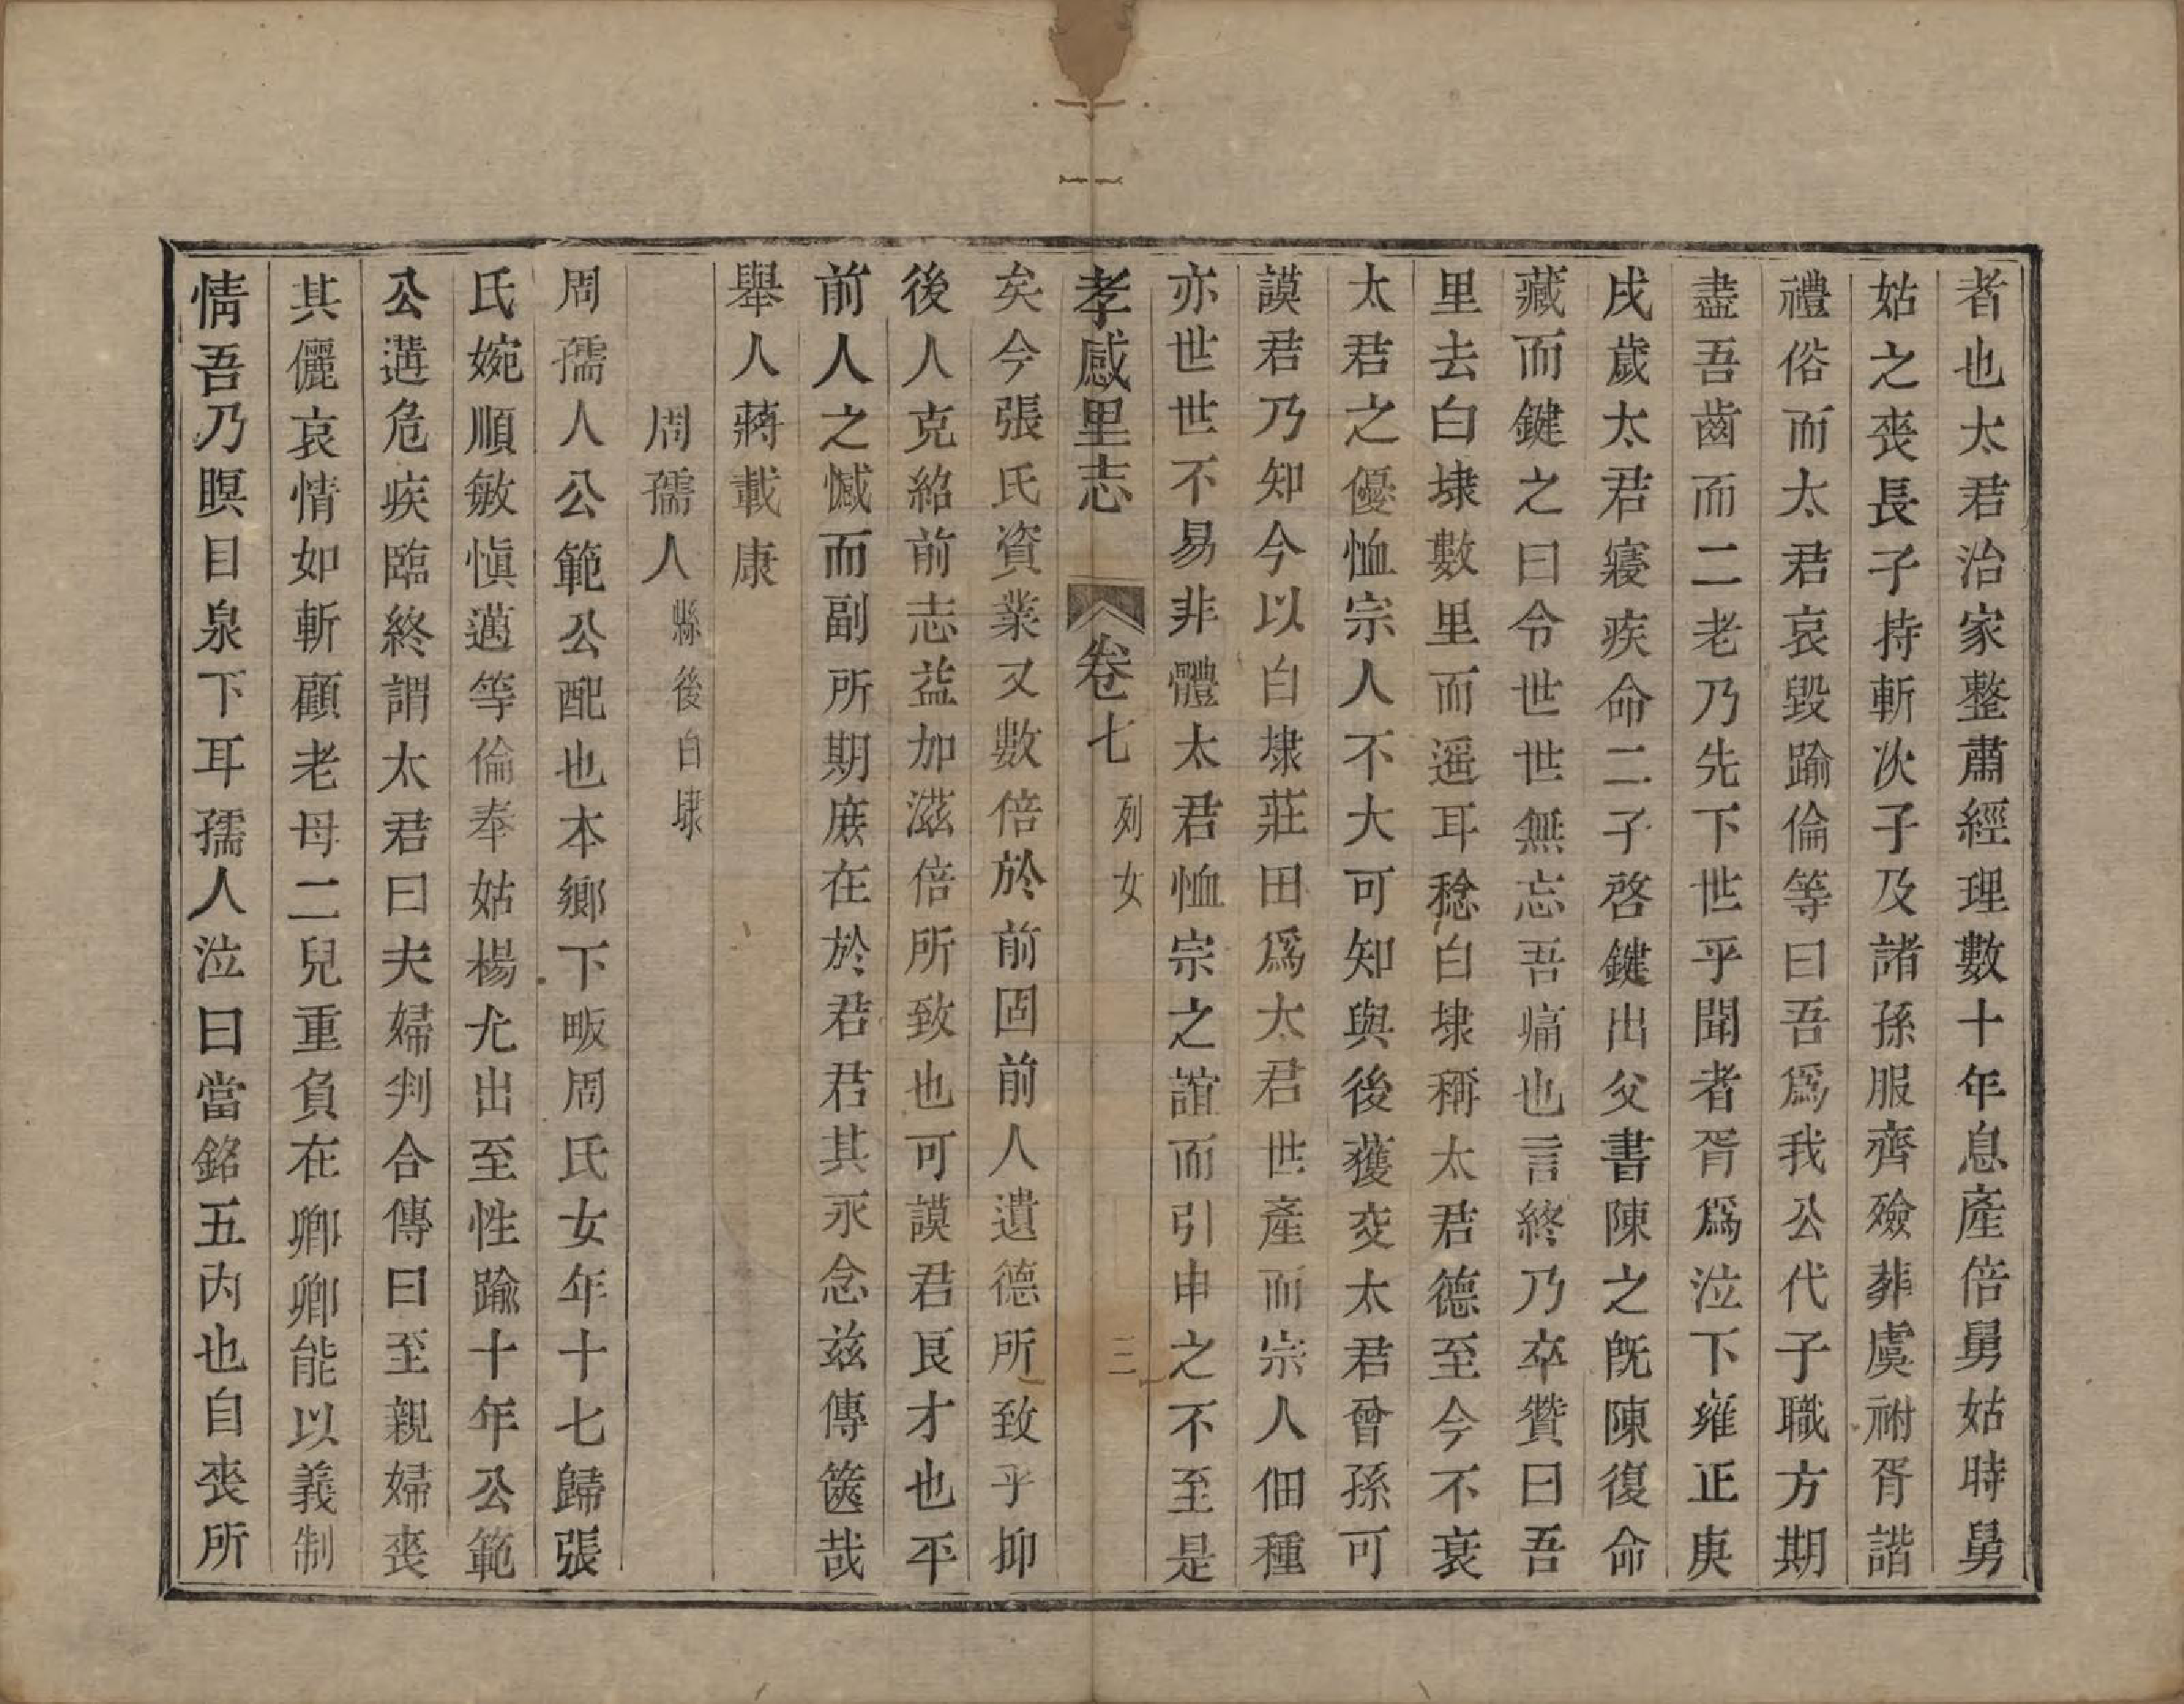 者也太君治家整肅經理數十年息產倍舅姑時舅
姑之喪長子持斬次子及諸孫服齊殮葬虞祔胥諧
禮俗而太君哀毀踰倫等曰吾爲我公代子職方期
盡吾齒而二老乃先下世乎聞者胥爲泣下雍正庚
戌歲太君寢疾命二子啓鍵出父書陳之旣陳復命
藏而鍵之曰令世世無忘吾痛也言終乃卒贊曰吾
里去白埭數里而遥耳稔白埭稱太君德至今不衰
太君之優恤宗人不大可知與後獲交太君曾孫可
謨君乃知今以白埭莊田爲太君世產而宗人佃種
亦世世不易非體太君恤宗之誼而引申之不至是
孝感里志 卷七 列女 三
矣今張氏資業又數倍於前固前人遺德所致乎抑
後人克紹前志益加滋倍所致也可謨君良才也平
前人之憾而副所期庶在於君君其永念兹傳篋哉
舉人蔣載康
周孺人 縣後白埭
周孺人公範公配也本鄉下畈周氏女年十七歸張
氏婉順敏愼邁等倫奉姑楊尤出至性踰十年公範
公遘危疾臨終謂太君曰夫婦判合傳曰至親婦喪
其儷哀情如斬顧老母二兒重負在卿卿能以義制
情吾乃瞑目泉下耳孺人泣曰當銘五内也自喪所